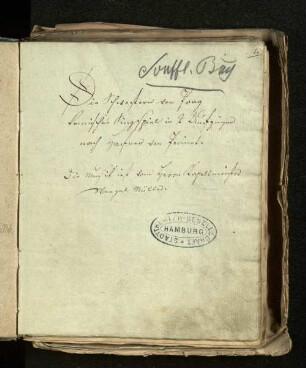 Souffl. Buch
Die Schwestern von Prag
komisches Singspiel in 2 Aufzügen
nach Hafner von Perinet.
Die Musik ist vom Herrn Kapellmeister
Wenzel Müller.
HAMBURG